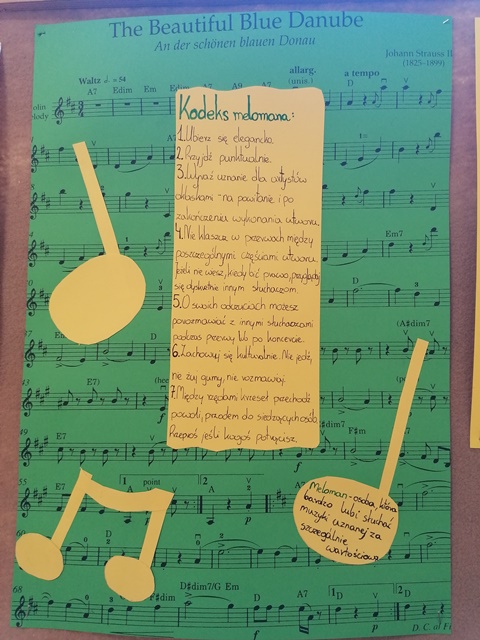 The Beautiful Blue Danube
An der schönen blauen Donau
Johann Strauss II
(1825–1899)
Waltz ♩. = 54
allarg.
a tempo
A7 Edim Em Edim
D
Kodeks melomana:
1. Ubierz się elegancko.
2. Przyjdź punktualnie.
3. Wyraź uznanie dla artystów
oklaskami - na powitanie i po
zakończeniu wykonania utworu.
4. Nie klaszcz w przerwach między
poszczególnymi częściami utworu.
Jeżeli nie wiesz, kiedy bić prawo, przyglądaj
się dyskretnie innym słuchaczom.
5. O swoich odczuciach możesz
porozmawiać z innymi słuchaczami
podczas przerwy lub po koncercie.
6. Zachowuj się kulturalnie. Nie jedz,
nie żuj gumy, nie rozmawiaj.
7. Między rzędami krzeseł przechodź
powoli, przodem do siedzących osób.
Przeproś jeśli kogoś potrącisz.
Em7
(A♯dim7
E7)
E7
F♯m
E7
1 point
2
Meloman - osoba, która
bardzo lubi słuchać
muzyki uznanej za
szczególnie
wartościową.
D♯dim7/G Em
D A7
D. C. al Fi